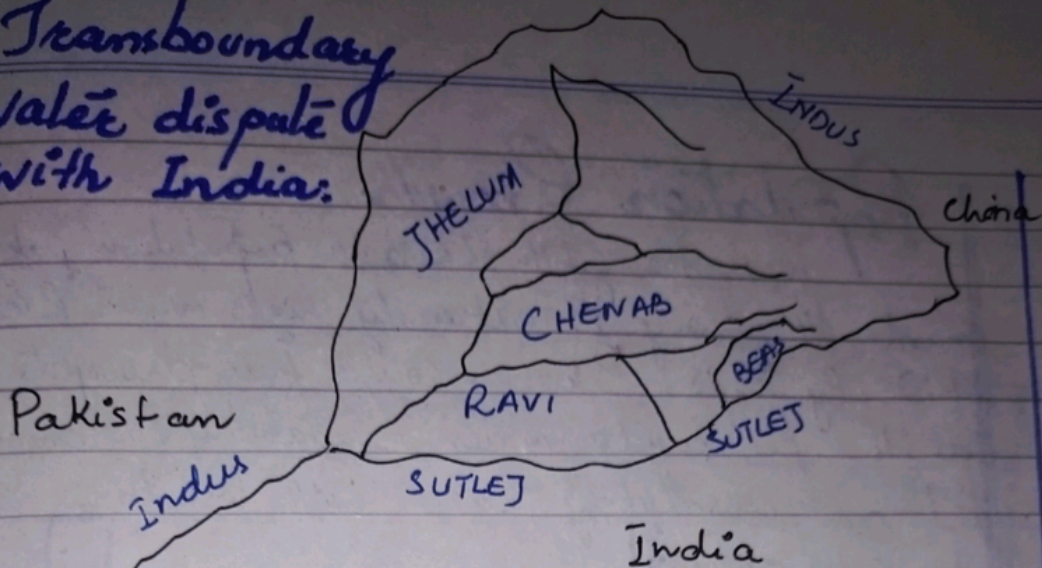 Transboundary
Water dispute
with India:
INDUS
China
JHELUM
CHENAB
BEAS
RAVI
Pakistan
SUTLEJ
Indus
SUTLEJ
India